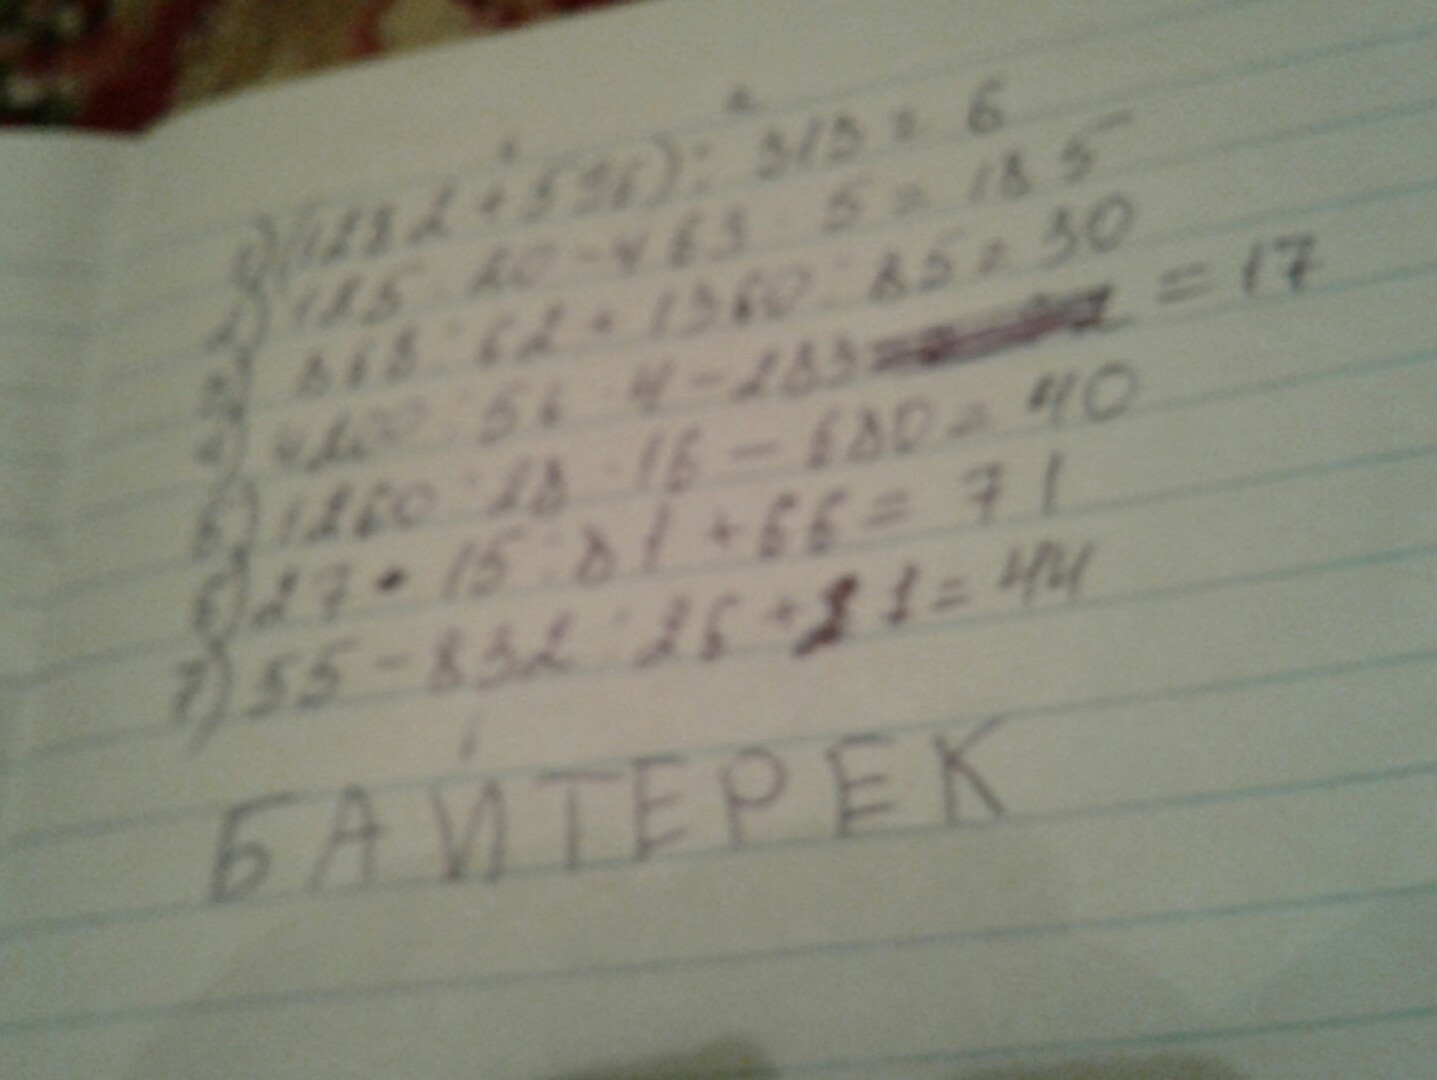 1) (1282 + 596) : 313 = 6
2) 125 · 20 - 463 · 5 = 185
3) 868 : 62 + 1360 : 85 = 30
4) 4200 : 56 · 4 - 283 = 17
5) 1260 : 28 · 16 - 680 = 40
6) 27 • 15 : 81 + 66 = 71
7) 55 - 832 : 26 + 21 = 44
БАЙТЕРЕК